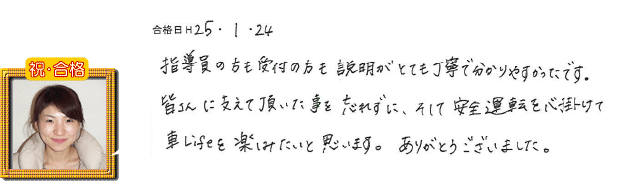 合格日H25・1・24
祝・合格
指導員の方も受付の方も説明がとても丁寧で分かりやすかったです。
皆さんに支えて頂いた事を忘れずに、そして安全運転を心掛けて
車Lifeを楽しみたいと思います。ありがとうございました。